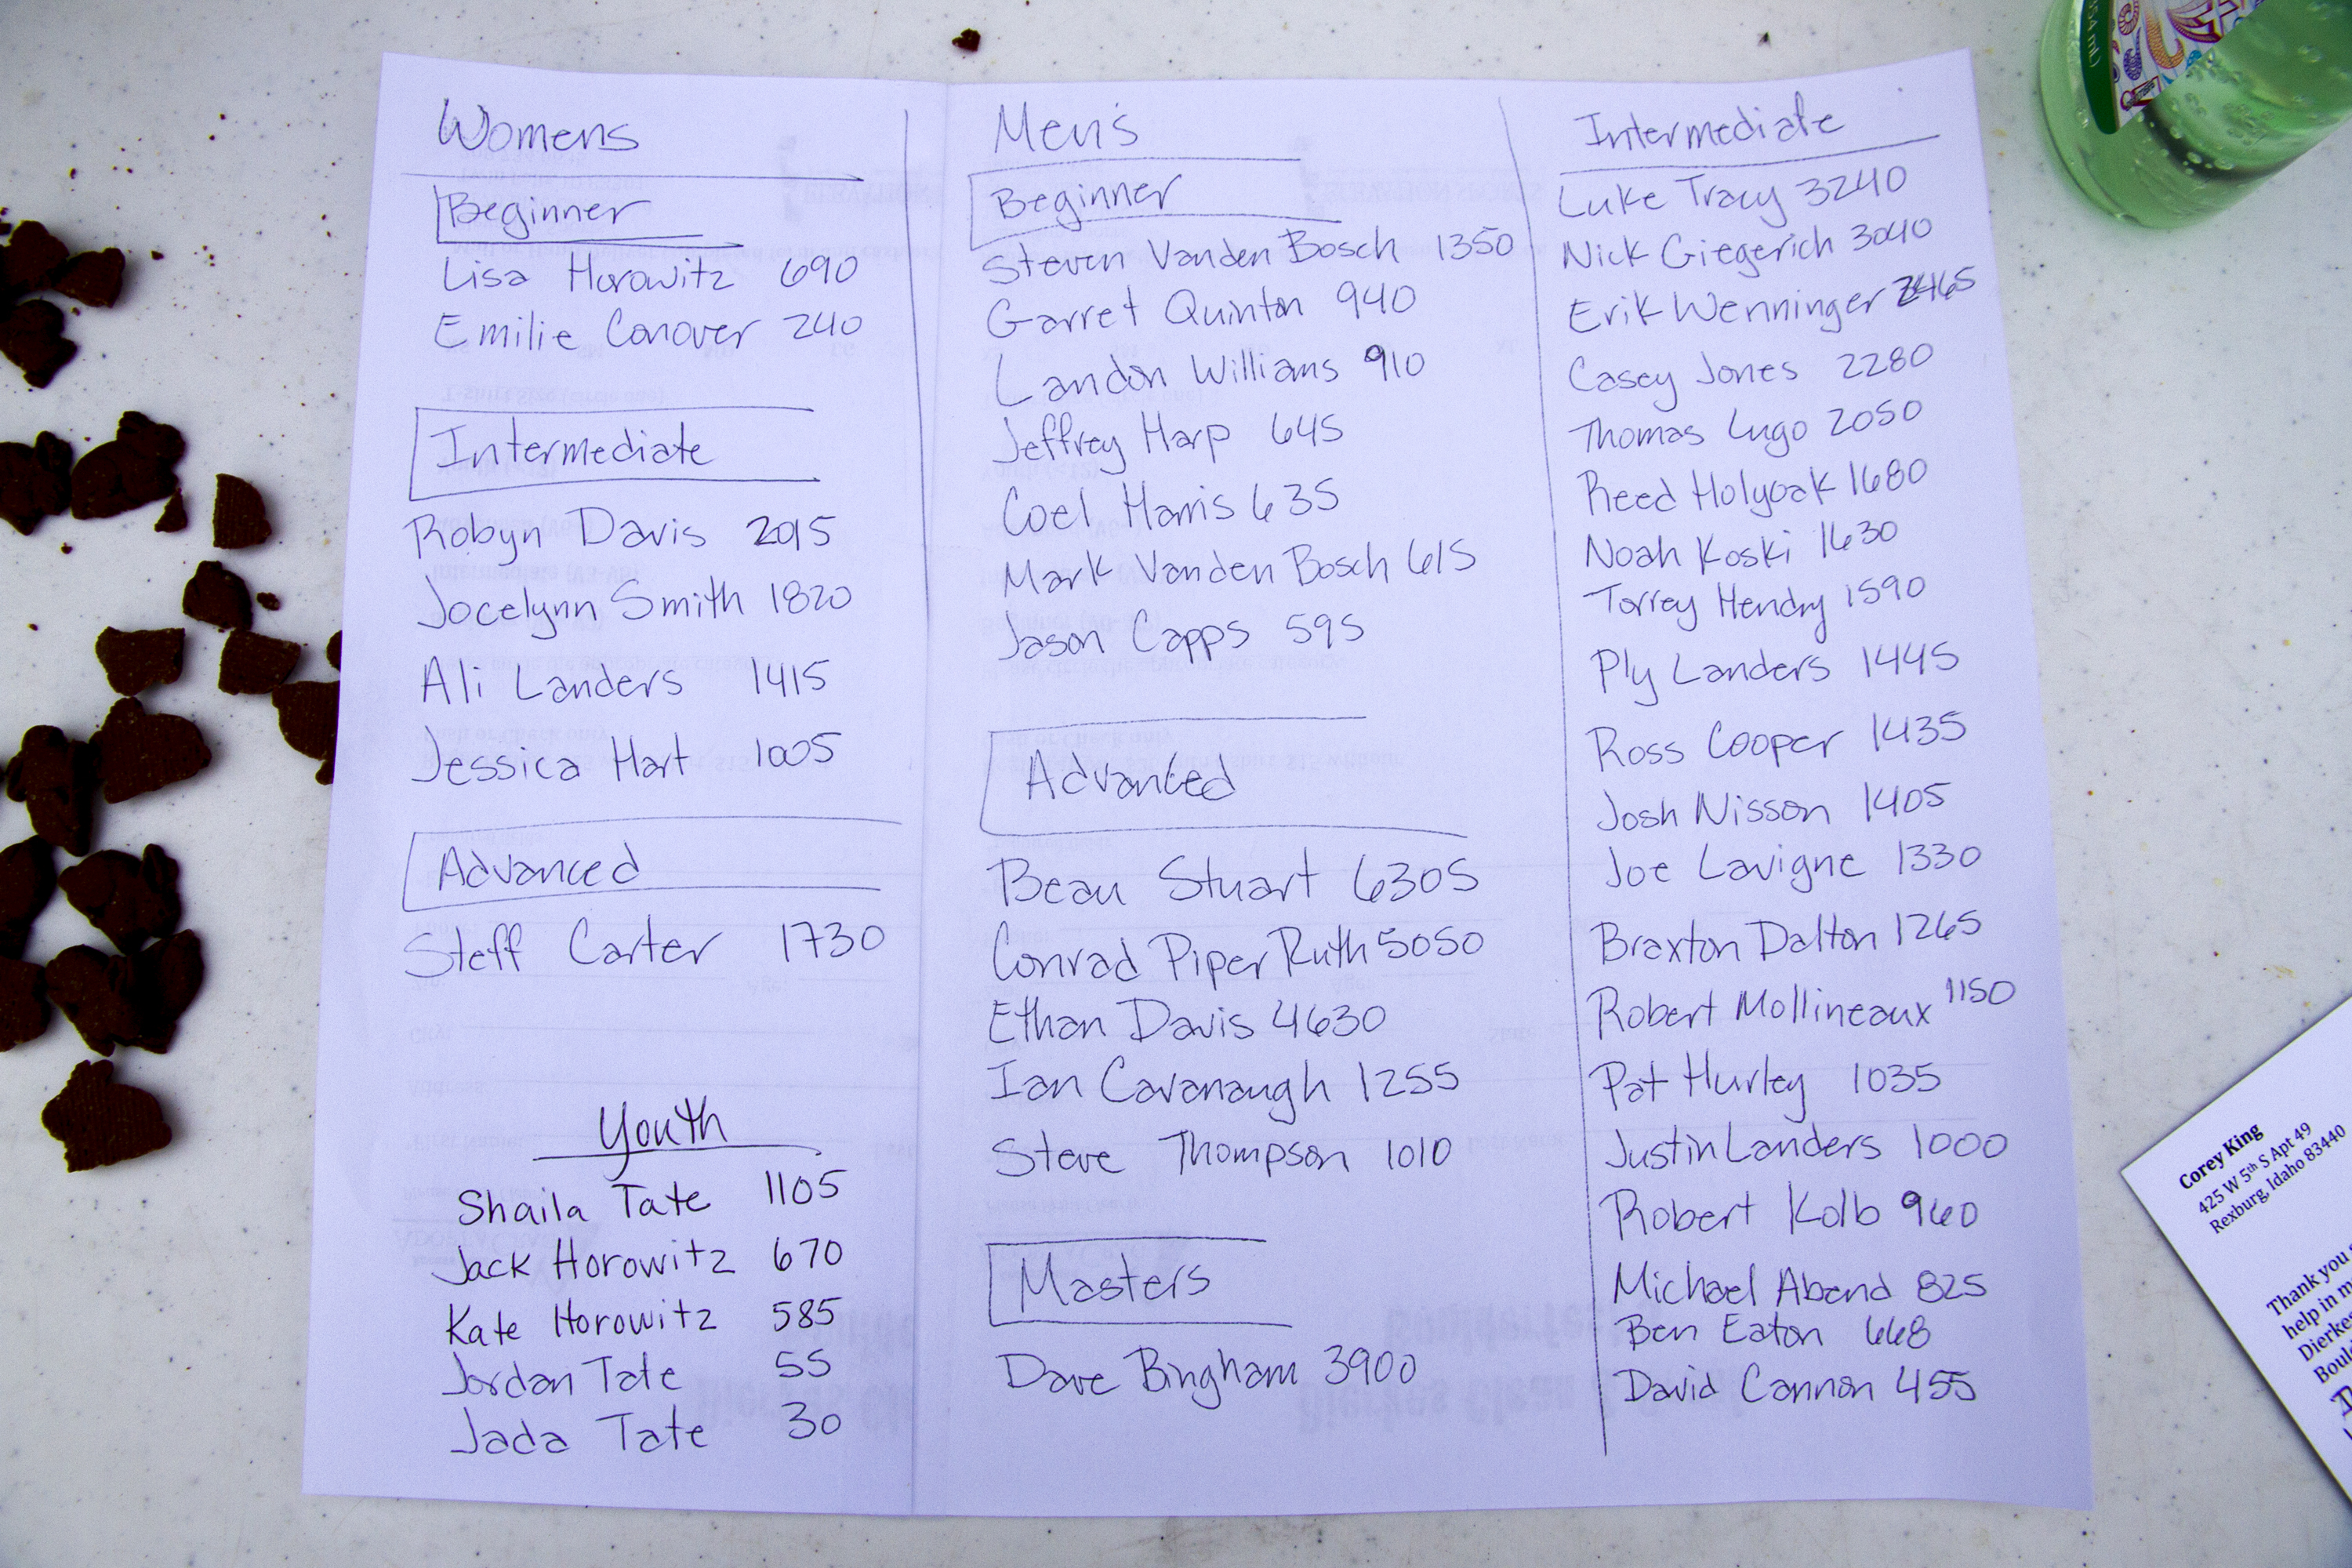 Womens
Beginner
Lisa Horowitz 690
Emilie Conover 240
Intermediate
Robyn Davis 2015
Jocelynn Smith 1820
Ali Landers 1415
Jessica Hart 1005
Advanced
Steff Carter 1730
Youth
Shaila Tate 1105
Jack Horowitz 670
Kate Horowitz 585
Jordan Tate 55
Jada Tate 30
Men's
Beginner
Steven Vanden Bosch 1350
Garret Quinton 940
Landon Williams 910
Jeffrey Harp 645
Coel Harris 635
Mark Vanden Bosch 615
Jason Capps 595
Advanced
Beau Stuart 6305
Conrad Piper Ruth 5050
Ethan Davis 4630
Ian Cavanaugh 1255
Steve Thompson 1010
Masters
Dave Bingham 3900
Intermediate
Luke Tracy 3240
Nick Giegerich 3040
Erik Wenninger 2465
Casey Jones 2280
Thomas Lugo 2050
Reed Holyoak 1680
Noah Koski 1630
Torrey Hendry 1590
Ply Landers 1445
Ross Cooper 1435
Josh Nisson 1405
Joe Lavigne 1330
Braxton Dalton 1265
Robert Mollineaux 1150
Pat Hurley 1035
Justin Landers 1000
Robert Kolb 960
Michael Abend 825
Ben Eaton 668
David Cannon 455
Corey King
425 W 5th S Apt 49
Rexburg, Idaho 83440
Thank you
help in